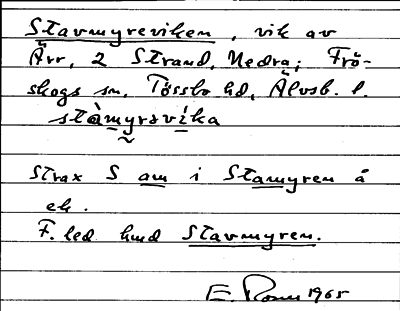 Stavmyreviken, vik av
Ärr, 2 Strand, Nedra; Frö-
skogs sn, Tössbo hd, Älvsb. l.
stàmyrsvika
Strax S am i Stamyren å
ek.
F. led hmd Stavmyren.
E. 1965